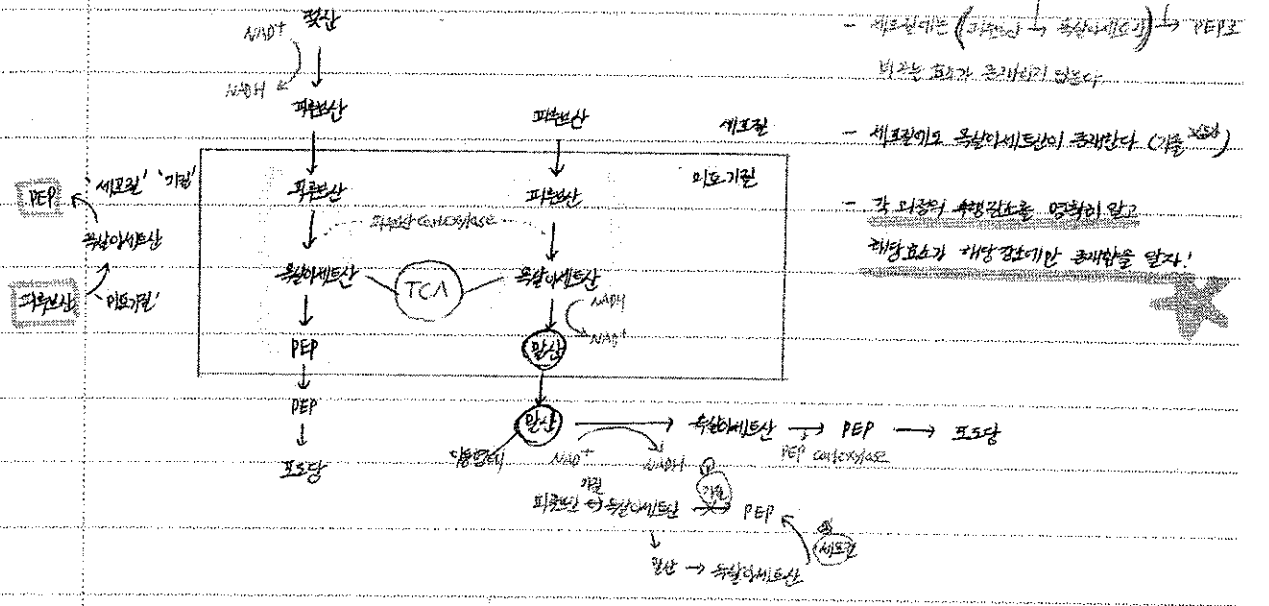 젖산
NAD⁺
NADH
피루브산
피루브산
세포질
미토기질
피루브산
피루브산
피루브산 carboxylase
옥살아세트산
TCA
옥살아세트산
NADH
NAD⁺
PEP
말산
PEP
포도당
말산
이동형태
NAD⁺
NADH
옥살아세트산
PEP
포도당
PEP carboxylase
기질
피루브산 옥살아세트산
①
기질
PEP
말산 → 옥살아세트산
②
세포질
PEP
'세포질' '기질'
옥살아세트산
피루브산
'미토기질'
- 세포질에는 ( → 옥살아세트산) → PEP로
바꾸는 효소가 존재하지 않는다
- 세포질에도 옥살아세트산이 존재한다 (기출)
- 각 과정의 수행장소를 명확히 알고
해당효소가 해당장소에만 존재함을 알자!